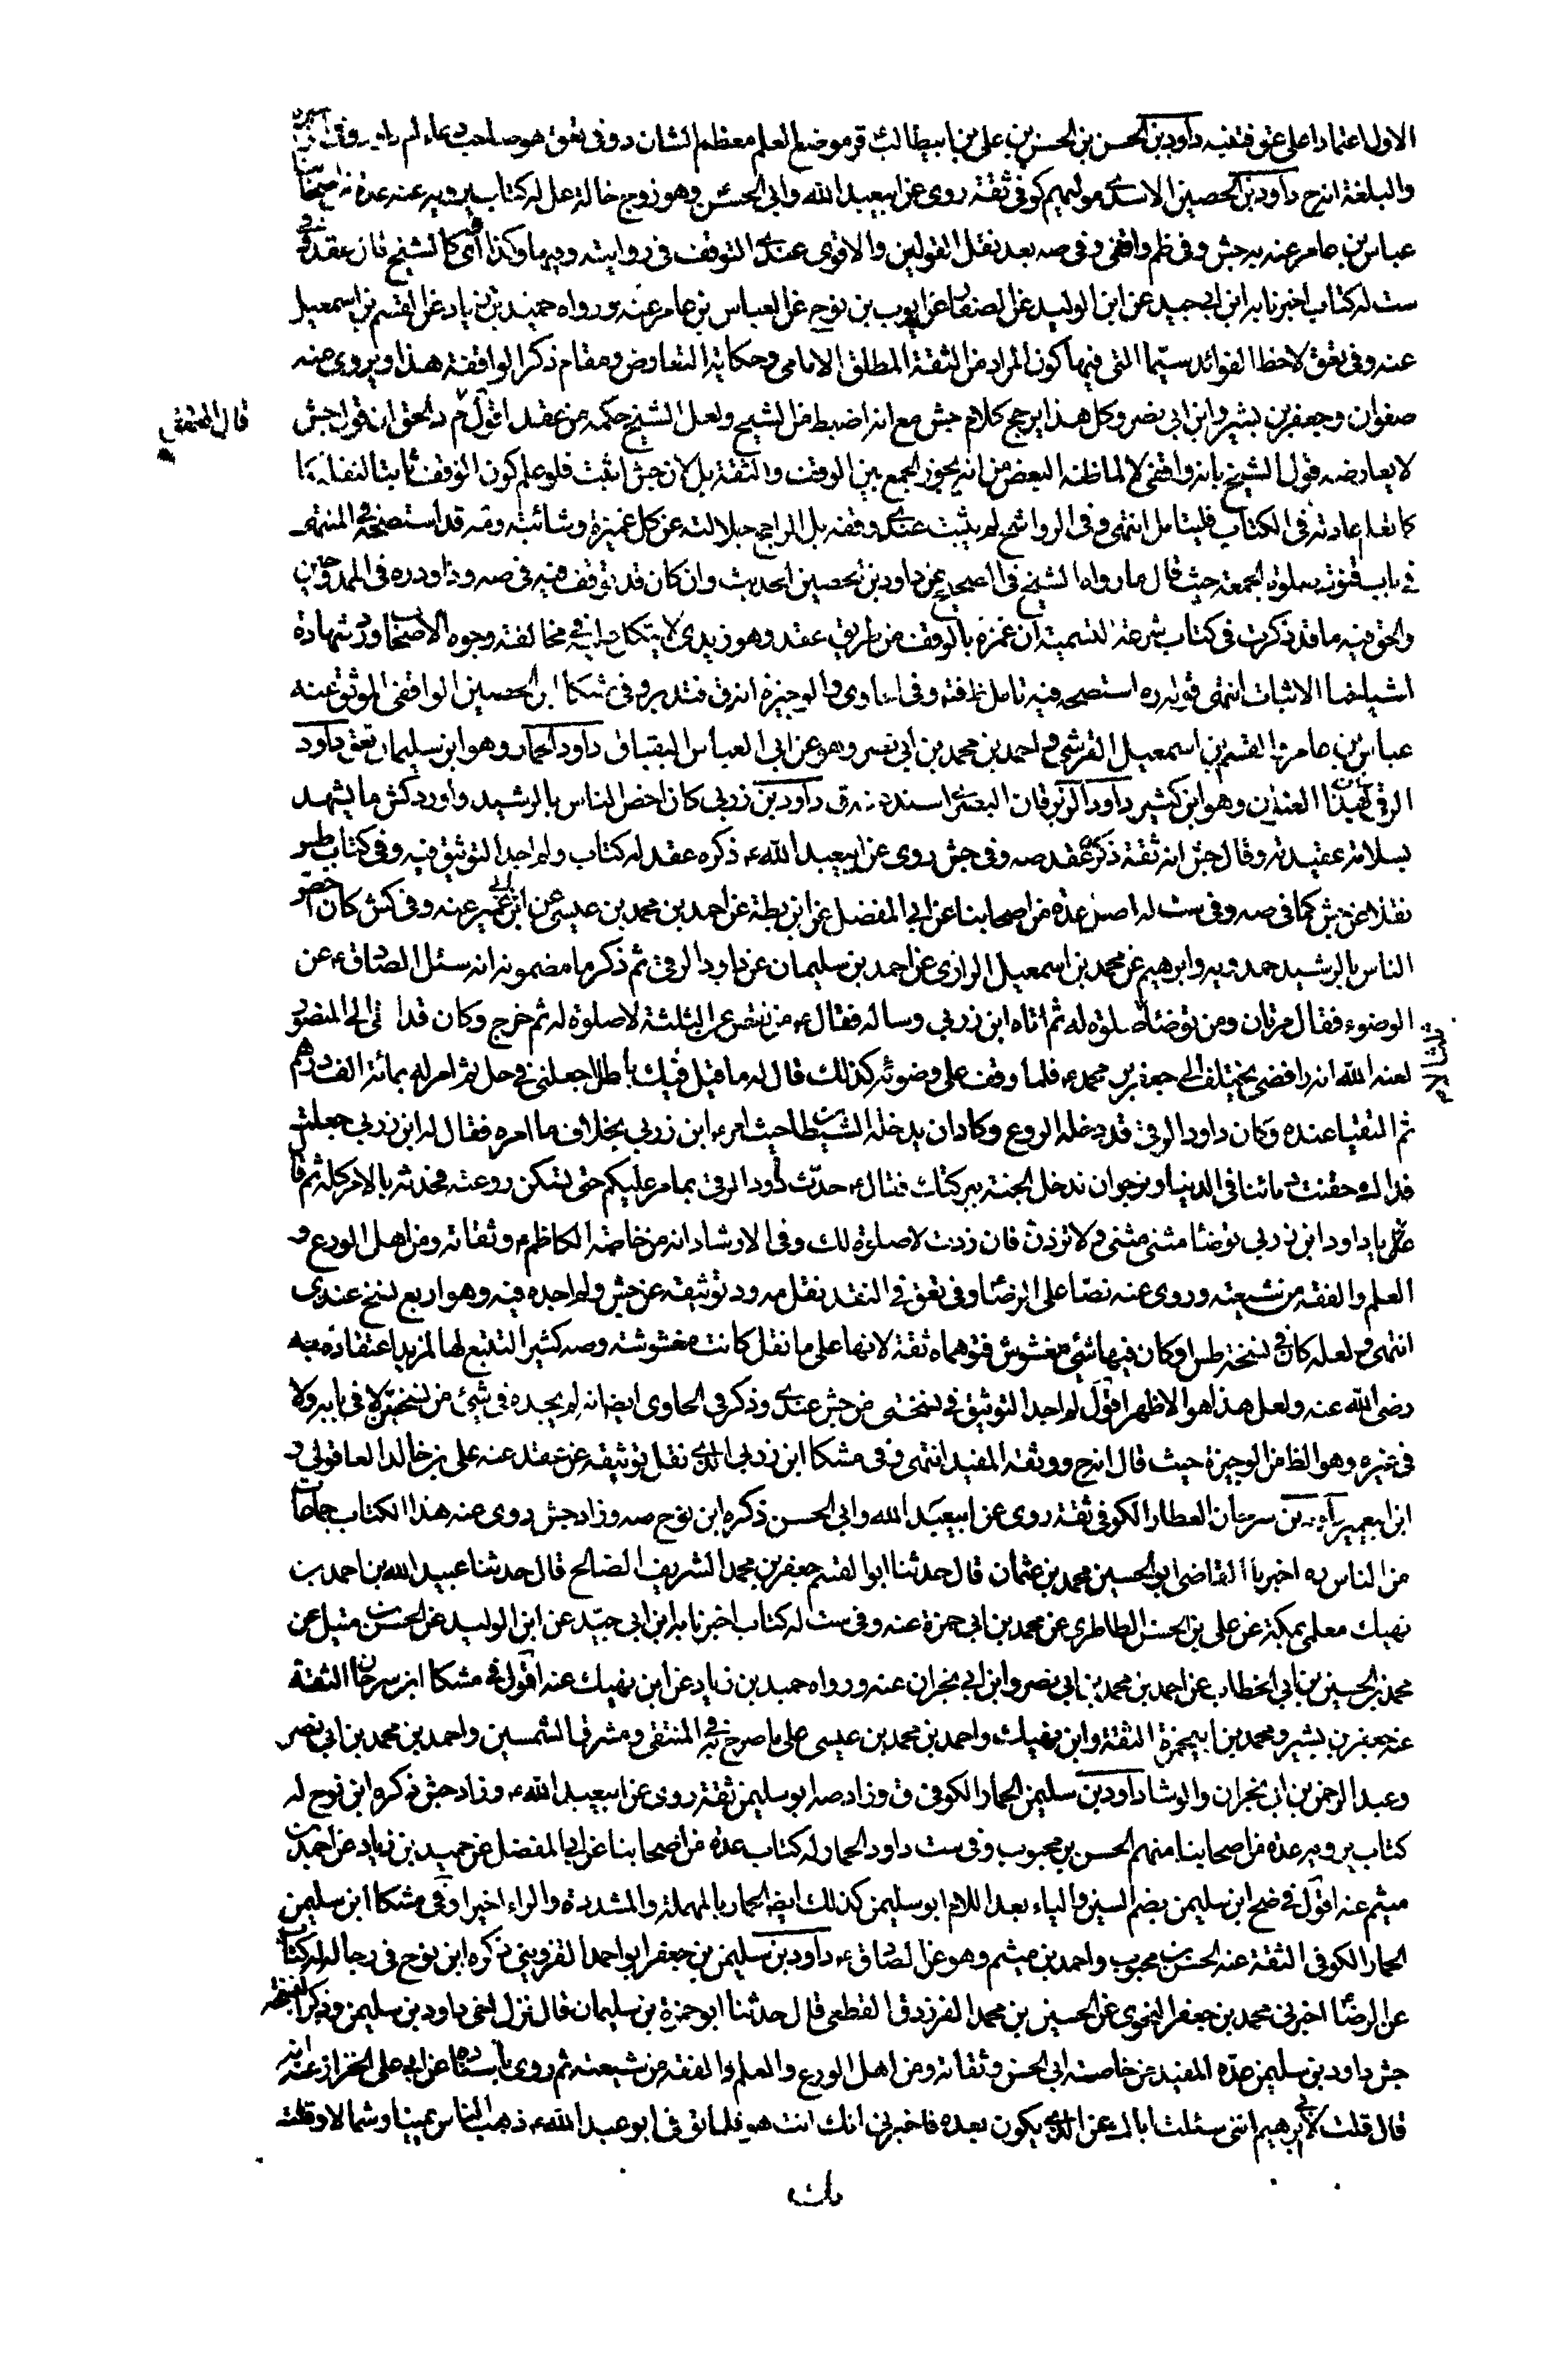 الاول اعتمادا على عق فتفيه داود بن الحسن بن الحسن بن علي بن ابيطالب قر موضع العلم معظم الشان د وفي تعق هو صاحب دعاء ام داود وفي
والبلغة انه ح داود بن الحصين الاسدي موليهم كوفي ثقة روى عن ابيعبد الله وابي الحسن وهو زوج خالة على له كتاب يرويه عنه عدة من اصحابنا
عباس بن عامر عنه به جش وفي ظم واقفي وفي صه بعد نقل القولين والاقوى عندي التوقف في روايته وكذا الشيخ قال عقدة
ست له كتاب اخبرنا به ابن ابي جيد عن ابن الوليد عن الصفار عن ايوب بن نوح عن العباس بن عامر عنه ورواه حميد بن زياد عن القسم بن اسمعيل
عنه وفي تعق لاحظ الفوائد سيما التي فيها كون المراد من الثقة المطلق الامامي وحكاية التعارض ومقام ذكر الواقفة هذا ويروي عنه
صفوان وجعفر بن بشير وابن ابي نصر وكل هذا يرجح كلام جش مع انه اضبط من الشيخ ولعل الشيخ حكمه من عقد اقول الحق ان قول جش
قال المحقق
لا يعارضه قول الشيخ بانه واقفي لا لما ظنه البعض من انه يجوز الجمع بين الوقف والثقة بل لان جش اثبت فلو علم كون الوقف ثابتا لنقله
كما تعلم عادته في الكتاب فليتامل انتهى وفي الرواشح لم يثبت عندي وقفه بل الراجح جلالته عن كل غميزة وشائبة وقد استصحه في المنتهى
في باب قنوت صلوة الجمعة حيث قال ما رواه الشيخ في الصحيح عن داود بن الحصين الحديث وان كان قد توقف فيه في صه
والحق فيه ما قد ذكرت في كتاب شرعة التسمية ان غمزه بالوقف من طريق عقد وهو زيدي لا يتكل عليه في مخالفة وجوه الاصحاب ورد شهادة
اشياخنا الاثبات انتهى قوله ره استصحه فيه تامل فافهم وفي الحاوي والوجيزة انه ق فتدبر وفي مشكا ابن الحصين الواقفي الموثق عنه
عباس بن عامر والقسم بن اسمعيل القرشي واحمد بن محمد بن ابي نصر وهو عن ابي العباس البقباق داود الحمار وهو ابن سليمان تعق داود
الرقي لهذا العنوان وهو ابن كثير داود الزبرقان البصري اسند عنه ق داود بن زربي كان اخص الناس بالرشيد واورد كش ما يشهد
بسلامة عقيدته وقال جش انه ثقة ذكره عقد صه وفي جش روى عن ابيعبد الله ع ذكره عقد له كتاب ولم اجد التوثيق فيه وفي كتاب طس
نقلا عن جش كما في صه وفي ست له اصل عدة من اصحابنا عن ابي المفضل عن ابن بطة عن احمد بن محمد بن عيسى عن ابن ابي عمير عنه وفي كش كان اخص
الناس بالرشيد حمدويه وابرهيم عن محمد بن اسمعيل الرازي عن احمد بن سليمان عن داود الرقي ثم ذكر ما مضمونه انه سئل الصادق ع عن
الوضوء فقال مرتان ومن توضأ ثلثا لا صلوة له ثم اتاه ابن زربي وساله فقال ع من نقص عن الثلثة لا صلوة له ثم خرج وكان قد القي الى المنصور
لعنه الله انه رافضي يختلف الى جعفر بن محمد ع فلما وقف على وضوئه كذلك قال له ما قيل فيك باطل اجعلني في حل ثم امر له بمائة الف درهم
ثم التقيا عنده وكان داود الرقي قد دخله الروع وكاد ان يدخله الشيطان حيث امر ع ابن زربي بخلاف ما امره فقال له ابن زربي جعلني
فداك حقنت دمائنا في الدنيا ونرجوا ان ندخل الجنة ببركتك فقال ع حدث داود الرقي بما مر عليكم حتى يسكن روعته فحدثه بالامر كله ثم قال
ع يا داود ابن زربي توضا مثنى مثنى ولا تزدن فان زدت لا صلوة لك وفي الارشاد انه من خاصة الكاظم ع وثقاته ومن اهل الورع و
العلم والفقه من شيعته وروى عنه نصا على الرضا وفي تعق في النقد نقل صه و د توثيقه عن جش ولم اجده فيه وهو اربع نسخ عندي
انتهى ولعله كان في نسخة طس او كان فيها شئ مغشوش فتوهماه ثقة لانها على ما نقل كانت مغشوشة وصه كثير التتبع لها لمزيد اعتقاده به
رضي الله عنه ولعل هذا هو الاظهر اقول لم اجد التوثيق في نسختي من جش عندي وذكر في الحاوي ايضا انه لم يجده في شئ من نسختين لا في بابه ولا
في غيره وهو الظ من الوجيزة حيث قال انه ح ووثقه المفيد انتهى وفي مشكا ابن زربي الذي نقل توثيقه عن عقد عنه علي بن خالد العاقولي و
ابن ابيعمير داود بن سرحان العطار الكوفي ثقة روى عن ابيعبد الله وابي الحسن ذكره ابن نوح صه وزاد جش روى عنه هذا الكتاب جماعات
من الناس ره اخبرنا القاضي ابو الحسين محمد بن عثمان قال حدثنا ابو القسم جعفر بن محمد الشريف الصالح قال حدثنا عبيد الله بن احمد بن
نهيك معلمي بمكة عن علي بن الحسن الطاطري عن محمد بن ابي حمزة عنه وفي ست له كتاب اخبرنا به ابن ابي جيد عن ابن الوليد عن الحسن بن متيل عن
محمد بن الحسين بن ابي الخطاب عن احمد بن محمد بن ابي نصر وابن ابي نجران عنه ورواه حميد بن زياد عن ابن نهيك عنه اقول في مشكا ابن سرحان الثقة
عنه جعفر بن بشير ومحمد بن ابيحمزة الثقة وابن نهيك واحمد بن محمد بن عيسى على ما صرح به في المنتقى ومشرق الشمسين واحمد بن محمد بن ابي نصر
وعبد الرحمن بن ابي نجران والوشا داود بن سليمن الحمار الكوفي ق وزاد صه ابو سليمن ثقة روى عن ابيعبد الله ع وزاد جش ذكره ابن نوح له
كتاب يرويه عدة من اصحابنا منهم الحسن بن محبوب وفي ست داود الحمار له كتاب عدة من اصحابنا عن ابي المفضل عن حميد بن زياد عن احمد بن
ميثم عنه اقول في ضح ابن سليمن بضم السين والياء بعد اللام ابو سليمن كذلك ايضا الحمار بالمهملة والمشددة والراء اخيرا وفي مشكا ابن سليمن
الحمار الكوفي الثقة عنه الحسن بن محبوب واحمد بن ميثم وهو عن الصادق ع داود بن سليمن بن جعفر ابو احمد القزويني ذكره ابن نوح في رجاله له كتاب
عن الرضا اخبرني محمد بن جعفر النحوي عن الحسين بن محمد الفرزدق القطعي قال حدثنا ابو حمزة بن سليمان قال نزل اخي داود بن سليمن وذكر النسخة
جش داود بن سليمن عده المفيد من خاصة ابي الحسن وثقاته ومن اهل الورع والعلم والفقه من شيعته ثم روى باسناده عن ابي علي الخزاز عنه انه
قال قلت لابي ابرهيم انني سئلت اباك ع عن الذي يكون بعده فاخبرني انك انت هو فلما توفي ابو عبد الله ع ذهب الناس يمينا وشمالا وقلت
بك